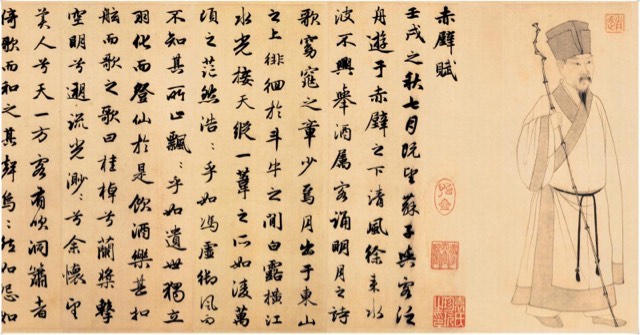 赤壁賦
壬戌之秋七月既望蘇子與客泛
舟遊于赤壁之下清風徐來水
波不興舉酒屬客誦明月之詩
歌窈窕之章少焉月出于東山
之上徘徊於斗牛之間白露橫江
水光接天縱一葦之所如淩萬
頃之茫然浩〻乎如馮虛御風而
不知其所止飄〻乎如遺世獨立
羽化而登仙於是飲酒樂甚扣
舷而歌之歌曰桂棹兮蘭槳擊
空明兮遡流光渺〻兮余懷望
美人兮天一方客有吹洞簫者
倚歌而和之其聲烏〻然如怨如